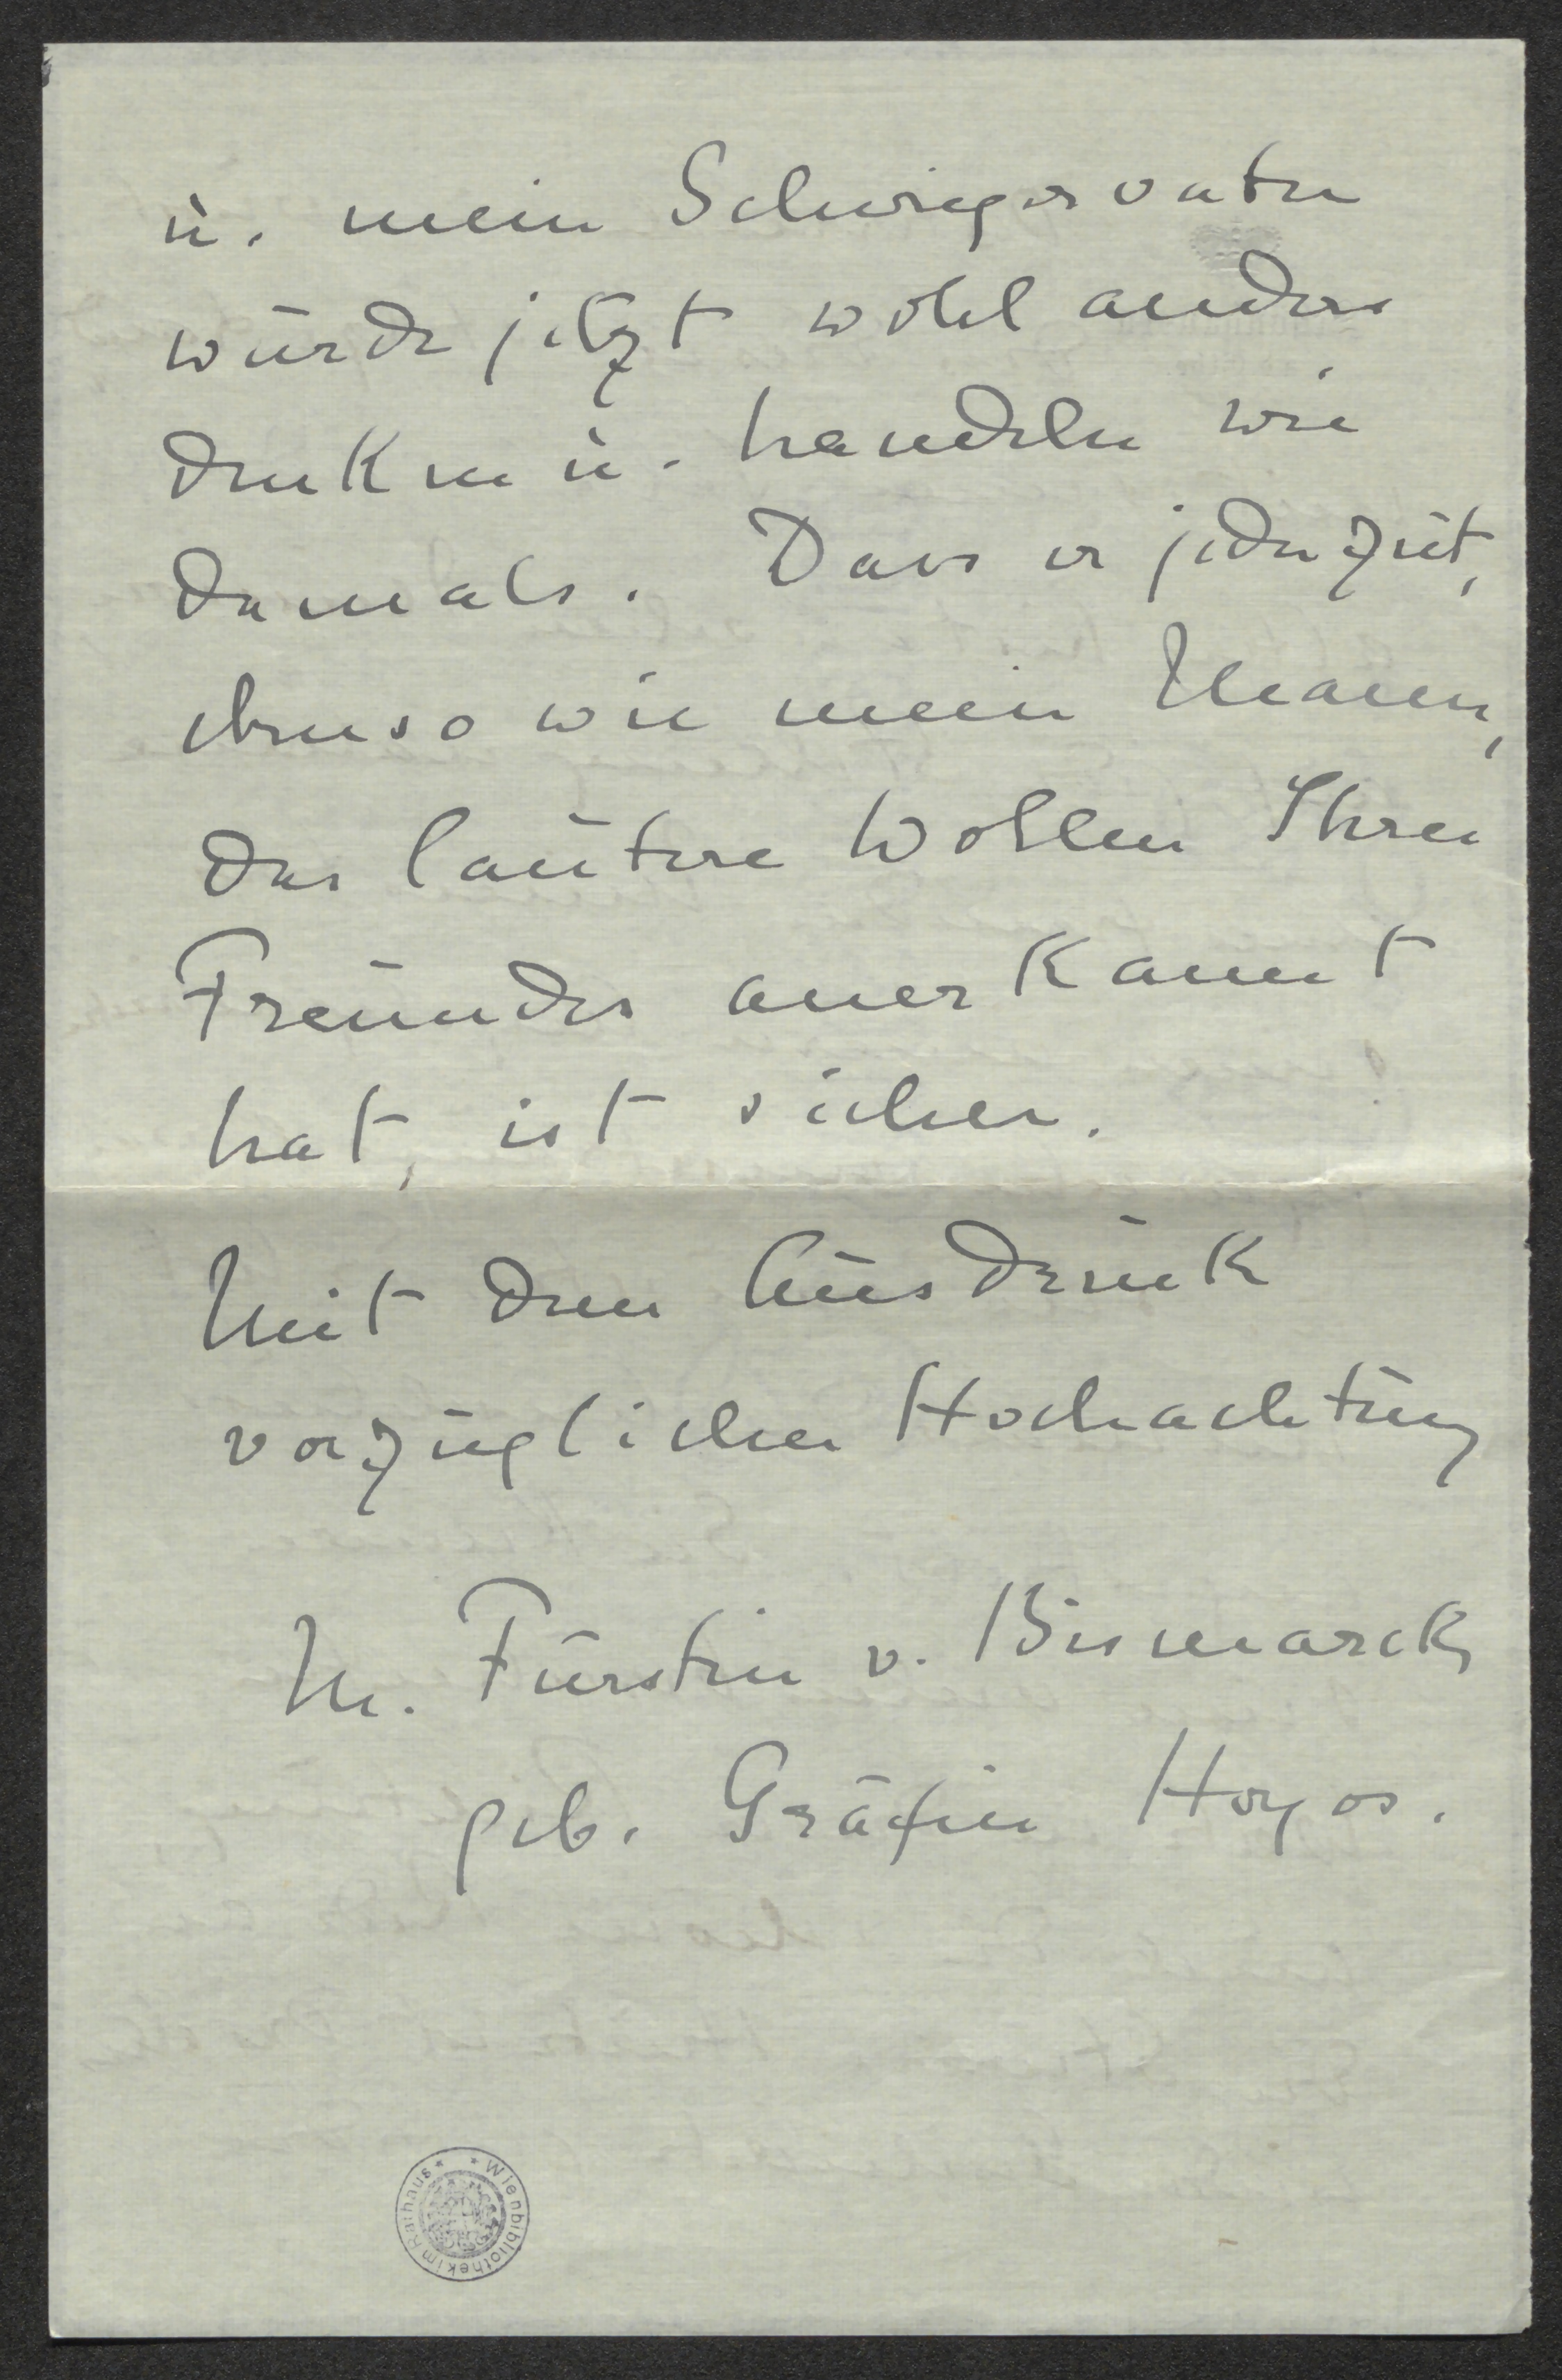 u. mein Schwiegervater
würde jetzt wohl anders
denken u. handeln wie
damals. Dass er jederzeit,
ebenso wie mein Mann,
das lautere Wollen Ihres
Freundes anerkannt
hat, ist sicher.
Mit dem Ausdruck
vorzüglicher Hochachtung
M. Fürstin v. Bismarck
geb. Gräfin Hoyos.
* Wienbibliothek im Rathaus *